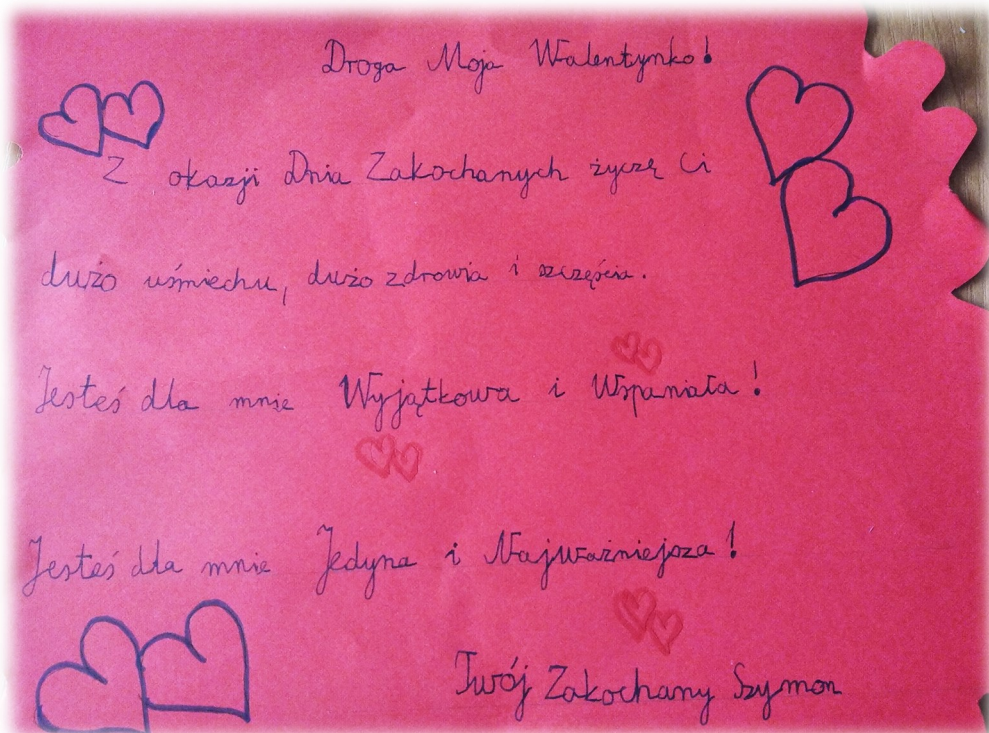 Droga Moja Walentynko!
Z okazji Dnia Zakochanych życzę Ci
dużo uśmiechu, dużo zdrowia i szczęścia.
Jesteś dla mnie Wyjątkowa i Wspaniała!
Jesteś dla mnie Jedyna i Najważniejsza!
Twój Zakochany Szymon